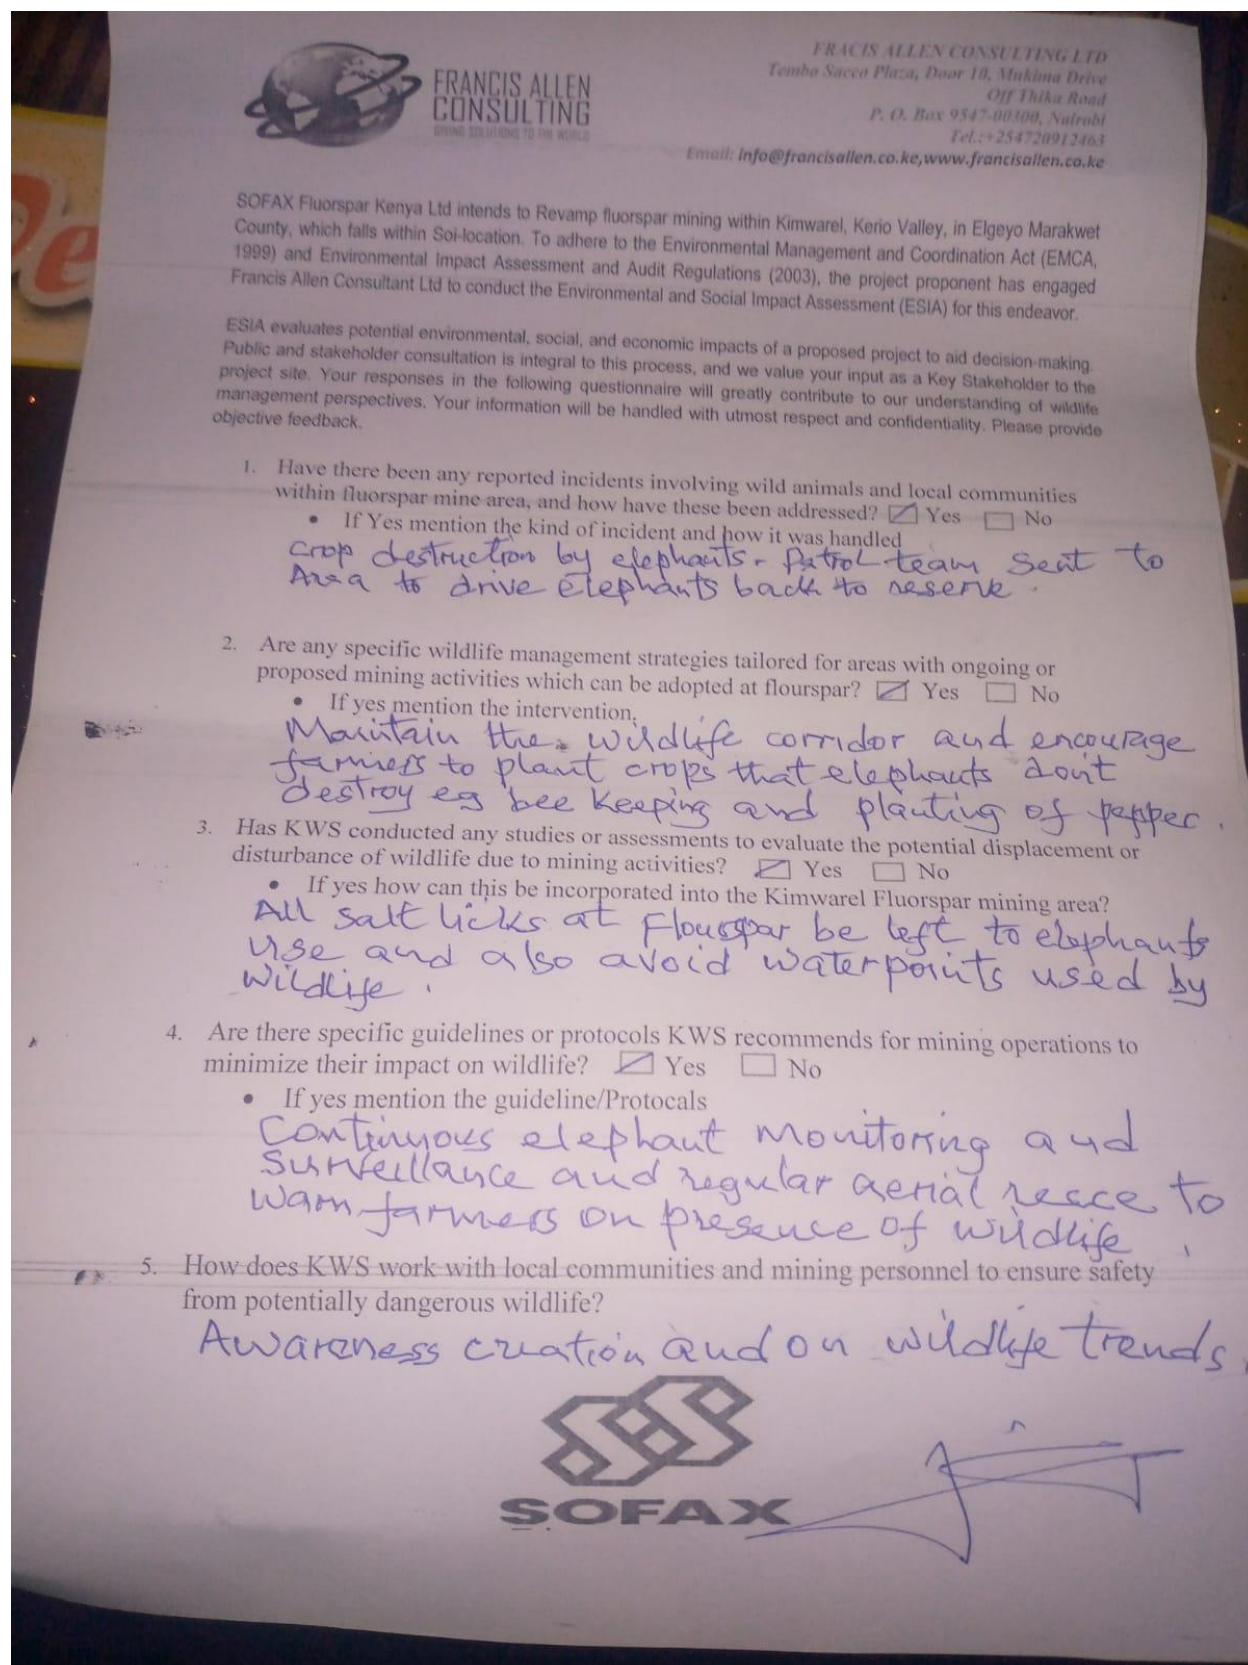 FRANCIS ALLEN
CONSULTING
GIVING SOLUTIONS TO THE WORLD
FRACIS ALLEN CONSULTING LTD
Tembo Sacco Plaza, Door 10, Mukima Drive
Off Thika Road
P. O. Box 9547-00300, Nairobi
Tel.:+254720912463
Email: info@francisallen.co.ke,www.francisallen.co.ke
SOFAX Fluorspar Kenya Ltd intends to Revamp fluorspar mining within Kimwarel, Kerio Valley, in Elgeyo Marakwet
County, which falls within Soi-location. To adhere to the Environmental Management and Coordination Act (EMCA,
1999) and Environmental Impact Assessment and Audit Regulations (2003), the project proponent has engaged
Francis Allen Consultant Ltd to conduct the Environmental and Social Impact Assessment (ESIA) for this endeavor.
ESIA evaluates potential environmental, social, and economic impacts of a proposed project to aid decision-making.
Public and stakeholder consultation is integral to this process, and we value your input as a Key Stakeholder to the
project site. Your responses in the following questionnaire will greatly contribute to our understanding of wildlife
management perspectives. Your information will be handled with utmost respect and confidentiality. Please provide
objective feedback.
1. Have there been any reported incidents involving wild animals and local communities
within fluorspar mine area, and how have these been addressed? Yes No
• If Yes mention the kind of incident and how it was handled
Crop destruction by elephants - Patrol team sent to
Area to drive Elephants back to reserve.
2. Are any specific wildlife management strategies tailored for areas with ongoing or
proposed mining activities which can be adopted at flourspar? Yes No
• If yes mention the intervention.
Maintain the wildlife corridor and encourage
farmers to plant crops that elephants don't
destroy eg bee keeping and planting of pepper.
3. Has KWS conducted any studies or assessments to evaluate the potential displacement or
disturbance of wildlife due to mining activities? Yes No
• If yes how can this be incorporated into the Kimwarel Fluorspar mining area?
All salt licks at Flourspar be left to elephants
use and also avoid waterpoints used by
wildlife.
4. Are there specific guidelines or protocols KWS recommends for mining operations to
minimize their impact on wildlife? Yes No
• If yes mention the guideline/Protocals
Continuous elephant monitoring and
surveillance and regular aerial recce to
warn farmers on presence of wildlife.
5. How does KWS work with local communities and mining personnel to ensure safety
from potentially dangerous wildlife?
Awareness creation and on wildlife trends.
SOFAX